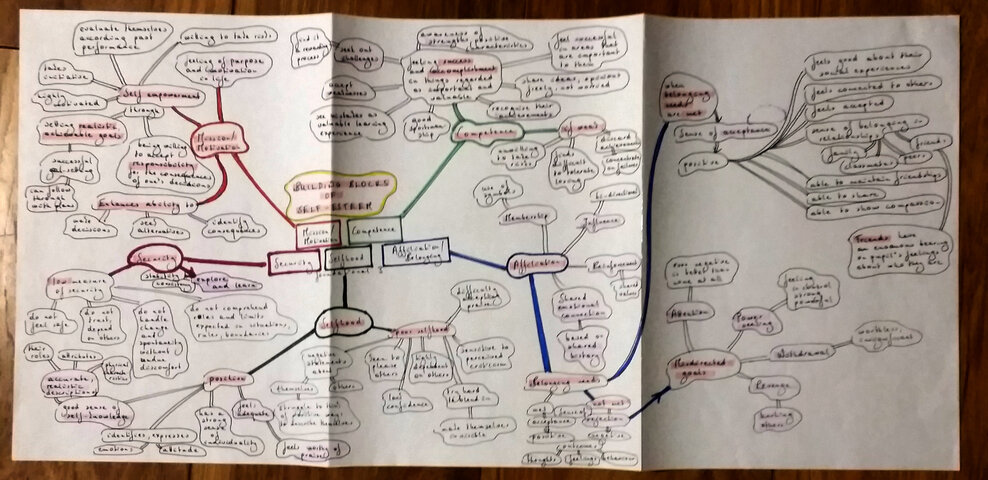 evaluate themselves
according past
performance
willing to take risks
feeling of purpose
and motivation
in life
takes
initiative
highly
motivated
Self empowerment
through
setting realistic
achievable goals
successful
goal-setting
being willing
to accept
responsibility
for the consequences
of one's decisions
Mission/
Motivation
can follow
through
with plans
Enhances ability to
make
decisions
seek
alternatives
identify
consequences
BUILDING BLOCKS
OF
SELF-ESTEEM
Mission
Motivation
Competence
Security
Selfhood
Affiliation/
Belonging
foundational 3
find it
a rewarding
process
seek out
challenges
awareness of
strengths, positive
characteristics
feeling success
and accomplishment
in things regarded
as important and
valuable
feel successful
in areas that
are important
to them
accept
weaknesses
share ideas, opinions
freely
see mistakes as
valuable learning
experience
good
sportsman
ship
recognise their
achievements
Competence
if weak
unwilling
to take
risks
find
difficult
to tolerate
losing
discard
achievements
concentrate
on failures
use of
symbols
Membership
bi-directional
Influence
Affiliation
Reinforcement
shared
values
Shared
emotional
connection
based on
shared
history
Belonging needs
met
not met
acceptance
rejection
positive
negative
outcomes
thoughts
feelings
behaviour
Security
explore
and learn
low measure
of security
do not
feel safe
do not
trust,
depend
on others
do not
handle
change
and
spontaneity
without
undue
discomfort
do not comprehend
roles and limits
expected in situations,
rules, boundaries
Selfhood
their
roles
attributes
physical
characteristics
accurate,
realistic
descriptions
good sense of
self-knowledge
positive
identifies, expresses
emotions
attitude
has a
strong
sense
of
individuality
feels
adequate
feels worthy of
praises
Poor selfhood
negative
statements
about
themselves
others
struggle to think
of positive ways
to describe themselves
difficulty
accepting
praise
seen to
please
others
lack
confidence
dependent
on others
sensitive to
perceived
criticism
try hard
to blend in
make themselves
invisible
when
belonging
needs
are met
Sense of acceptance
positive
feels good about their
social experiences
feels connected to others
feels accepted
sense of belonging in
relationships
family
friends
classmates
peers
able to maintain friendships
able to share
able to show compassion
Friends have
an enormous bearing
on pupil's feelings
about who they are
even negative
is better than
none at all
Attention
feeling
in control
strong
powerful
Power
seeking
Misdirected
goals
Withdrawal
worthless,
Revenge
hurting
others